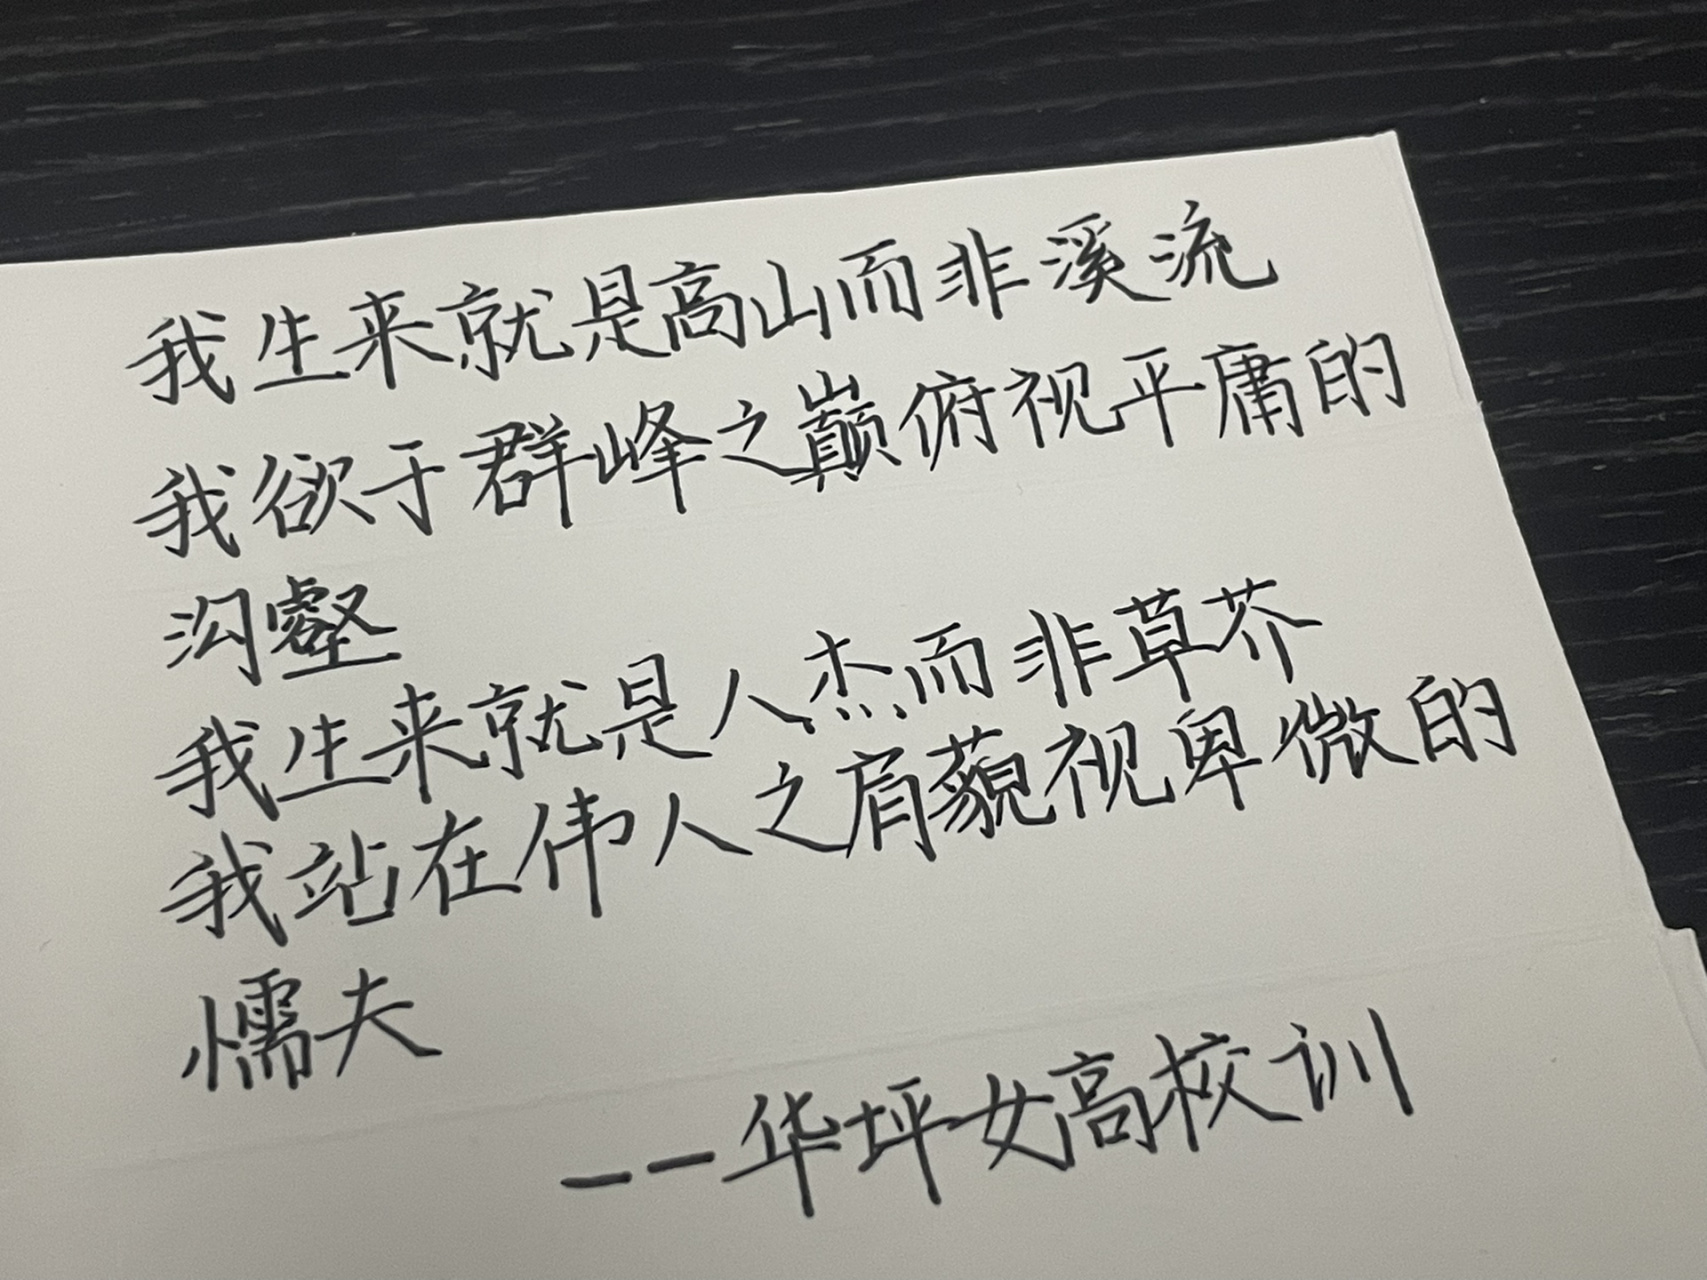 我生来就是高山而非溪流
我欲于群峰之巅俯视平庸的
沟壑
我生来就是人杰而非草芥
我站在伟人之肩藐视卑微的
懦夫
——华坪女高校训